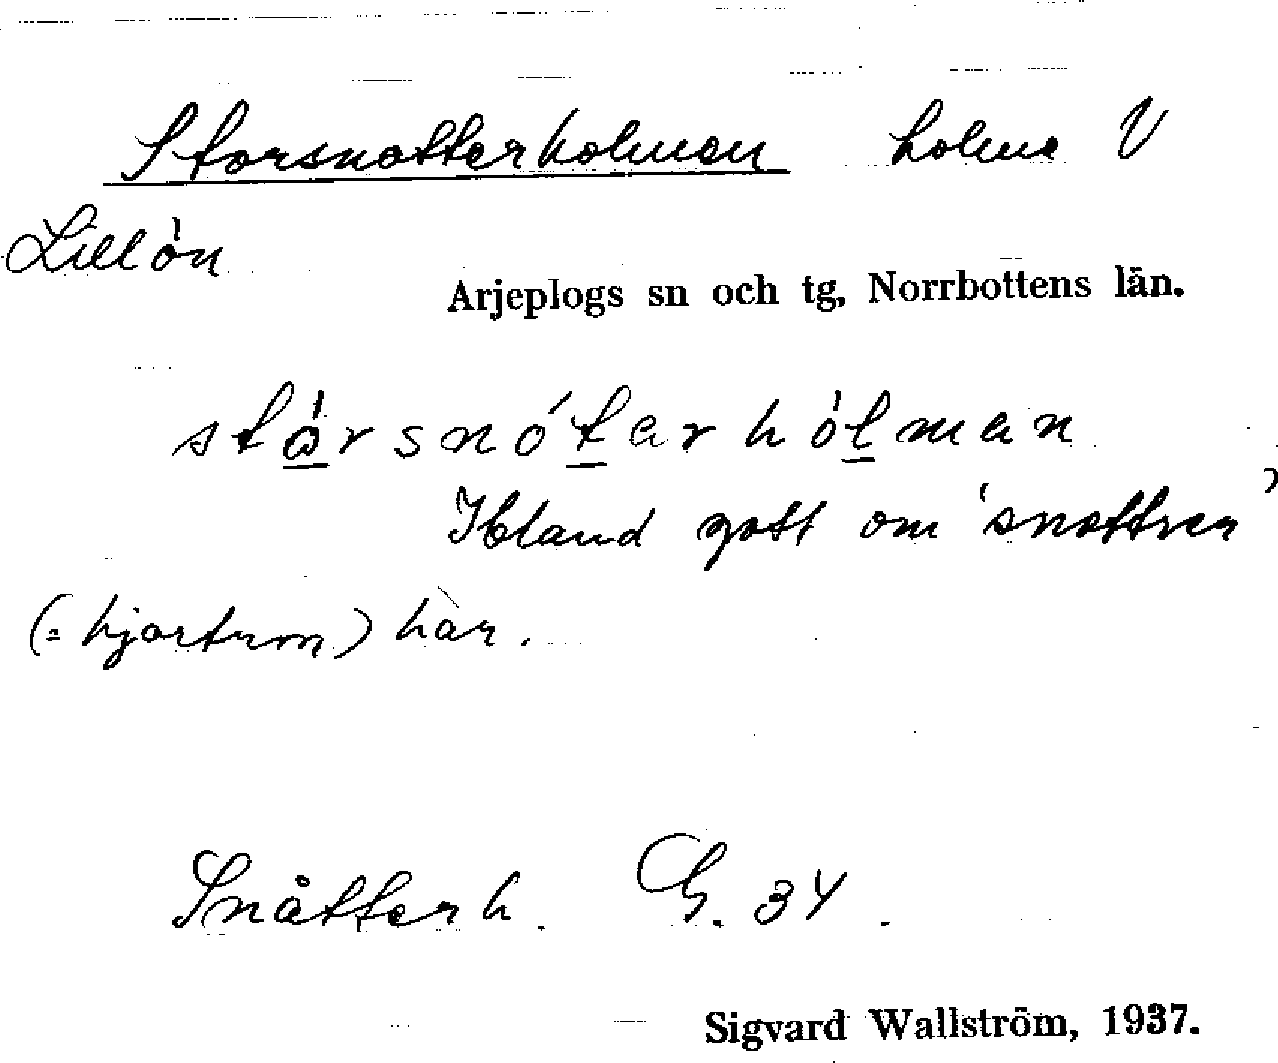 Storsnatterholmen holme V
Lillön
Arjeplogs sn och tg, Norrbottens län.
stò̱rsnót̲arhòl̲man
Ibland gott om 'snattren'
(= hjortron) här.
Snåtterh. G. 34.
Sigvard Wallström, 1937.